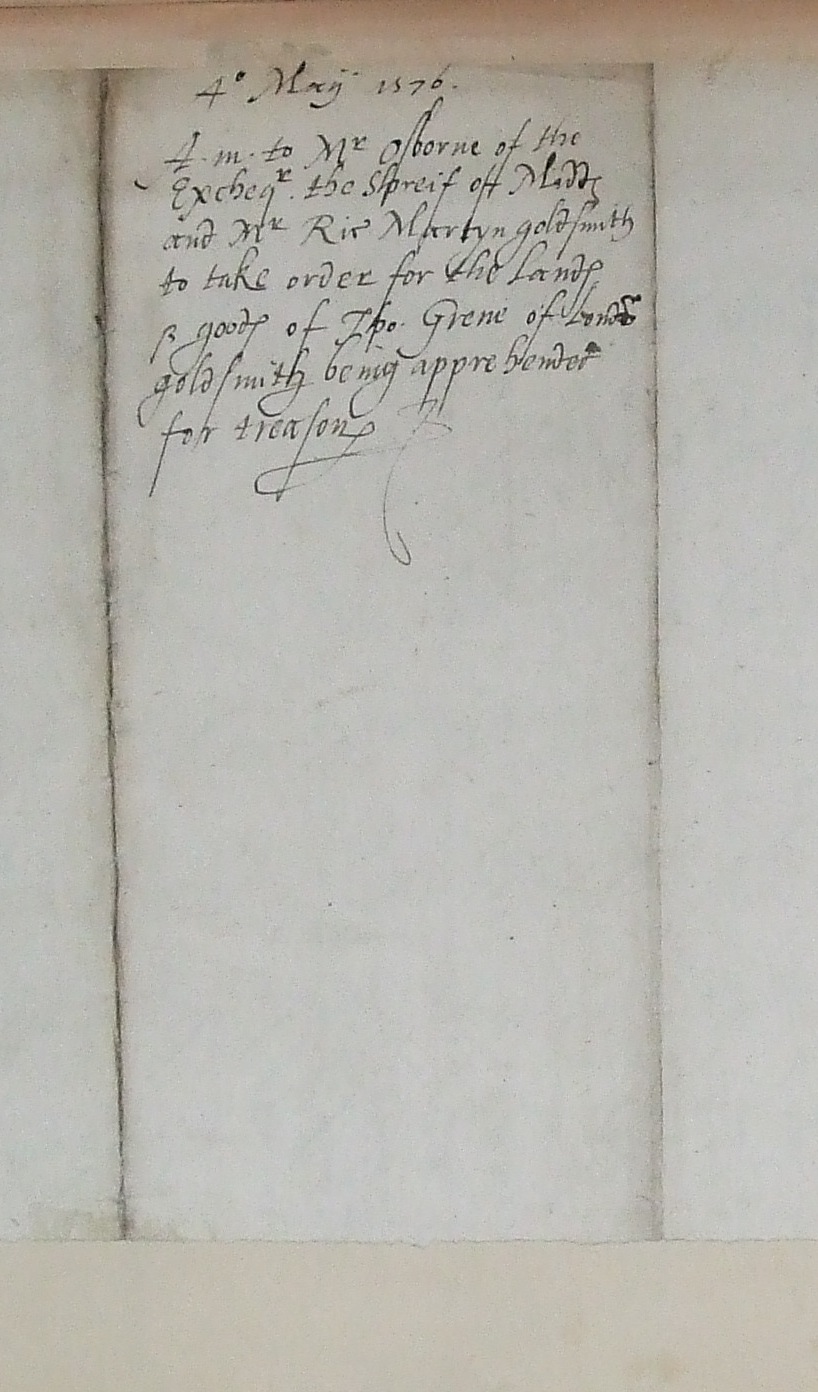 4º Maij 1576.
A. m. to Mr Osborne of the
Excheqr. the Shreif off Midds
and Mr Ric Martyn goldsmith
to take order for the landes
& goodes of Tho. Grene of London
goldsmith being apprehended
for treason